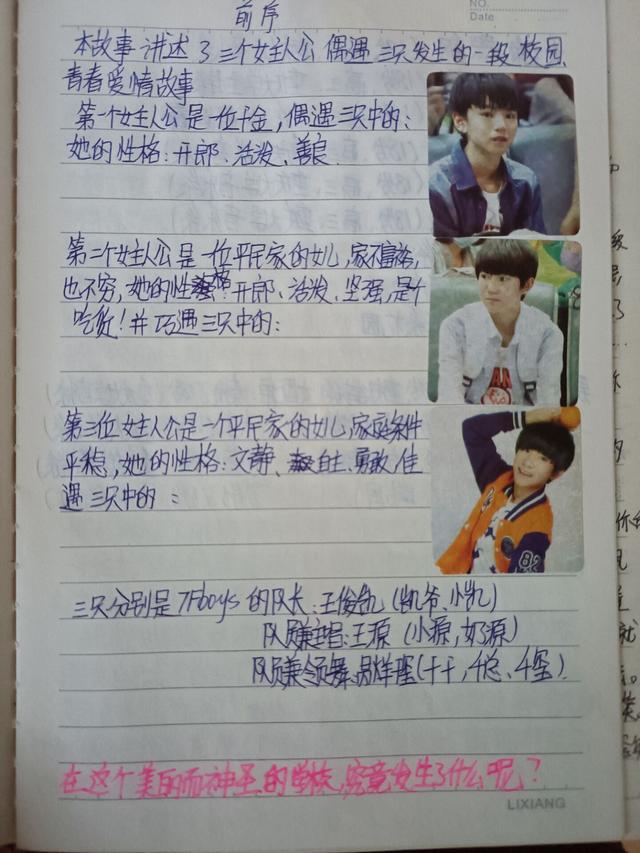 前序
NO.
Date
本故事讲述了三个女主人公偶遇三只发生的一段校园
青春爱情故事
第一个女主人公是一位千金,偶遇三只中的:
她的性格:开郎、活泼、善良.
第二个女主人公是一位平民家的女儿,家不富裕,
也不穷,她的性格:开郎、活泼、坚强,是个
吃货!并巧遇三只中的:
第三位女主人公是一个平民家的女儿,家庭条件
平稳,她的性格:文静、自主、勇敢,佳
遇三只中的:
三只分别是TFboys的队长:王俊凯(凯爷、小凯)
队员兼主唱:王源(小源,奶源)
队员兼领舞:易烊千玺(千千,千总、千玺)
在这个美丽而神圣的学校,究竟发生了什么呢?
LIXIANG